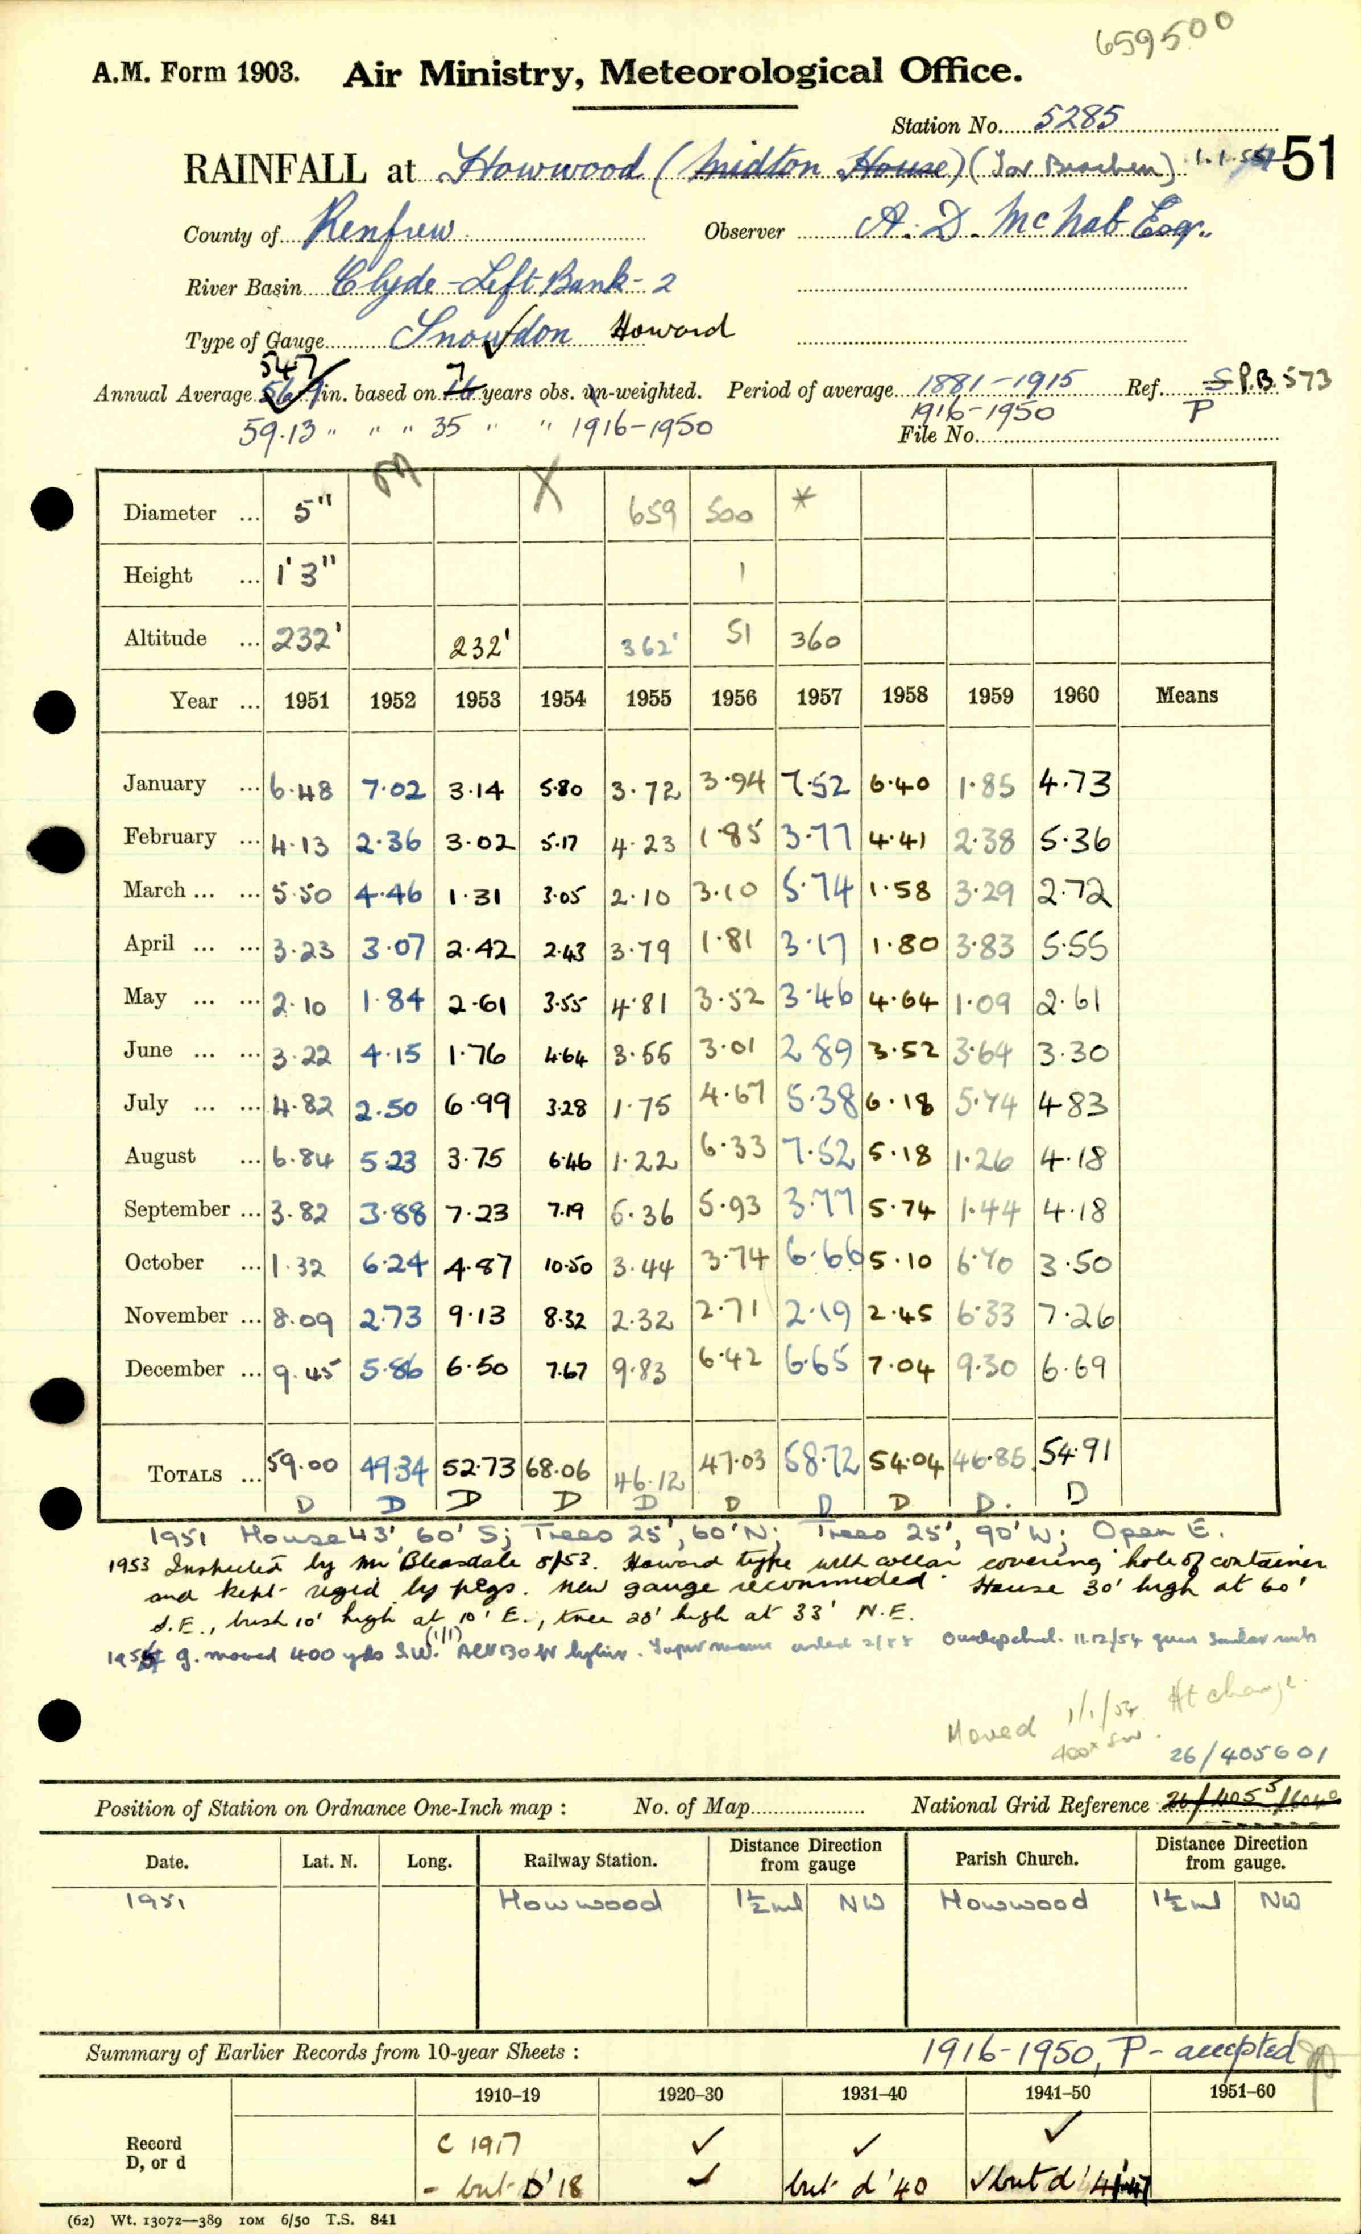 659500
A.M. Form 1903. Air Ministry, Meteorological Office.
Station No. 5285
RAINFALL at Howwood (Midton House) 51
County of Renfrew Observer A. D. McNab Esq.
River Basin Clyde - Left Bank - 2
Type of Gauge Snowdon Howard
547 7
Annual Average 56.9 in. based on 16 years obs. un-weighted. Period of average 1881-1915 Ref. S P.B. 573
59.13 " " " 35 " " 1916-1950 1916-1950 P
File No.
Diameter ... 5" 659 500 *
Height ... 1' 3" 1
Altitude ... 232' 232' 362' 51 360
Year ... 1951 1952 1953 1954 1955 1956 1957 1958 1959 1960 Means
January ... 6.48 7.02 3.14 5.80 3.72 3.94 7.52 6.40 1.85 4.73
February ... 4.13 2.36 3.02 5.17 4.23 1.85 3.77 4.41 2.38 5.36
March ... ... 5.50 4.46 1.31 3.05 2.10 3.10 5.74 1.58 3.29 2.72
April ... ... 3.23 3.07 2.42 2.43 3.79 1.81 3.17 1.80 3.83 5.55
May ... ... 2.10 1.84 2.61 3.55 4.81 3.52 3.46 4.64 1.09 2.61
June ... ... 3.22 4.15 1.76 4.64 3.55 3.01 2.89 3.52 3.64 3.30
July ... ... 4.82 2.50 6.99 3.28 1.75 4.67 5.38 6.18 5.74 4.83
August ... 6.84 5.23 3.75 6.46 1.22 6.33 7.52 5.18 1.26 4.18
September ... 3.82 3.88 7.23 7.19 5.36 5.93 3.77 5.74 1.44 4.18
October ... 1.32 6.24 4.87 10.50 3.44 3.74 6.66 5.10 6.70 3.50
November ... 8.09 2.73 9.13 8.32 2.32 2.71 2.19 2.45 6.33 7.26
December ... 9.45 5.86 6.50 7.67 9.83 6.42 6.65 7.04 9.30 6.69
TOTALS ... 59.00 49.34 52.73 68.06 46.12 47.03 58.72 54.04 46.85 54.91
D D D D D D D D D. D
1951 House 43', 60' S; Trees 25', 60' N; Trees 25', 90' W; Open E.
1953 Inspected by Mr Bleasdale 8/53. Howard type with collar covering hole of container
and kept rigid by pegs. New gauge recommended. House 30' high at 60'
S.E., bush 10' high at 10' E., tree 20' high at 33' N.E.
g. moved 400 yds S.W. (1/1)
Moved 1/1/54 Ht change.
400x SW. 26/405601
Position of Station on Ordnance One-Inch map : No. of Map National Grid Reference 26/4055/6040
Date. Lat. N. Long. Railway Station. Distance Direction from gauge Parish Church. Distance Direction from gauge.
1951 Howwood 1½ ml NW Howwood 1½ ml NW
Summary of Earlier Records from 10-year Sheets : 1916-1950, P - accepted
1910-19 1920-30 1931-40 1941-50 1951-60
Record C 1917 ✓ ✓ ✓
D, or d - but D '18 ✓ but d '40 ✓ but d '41-47
(62) Wt. 13072—389 10M 6/50 T.S. 841